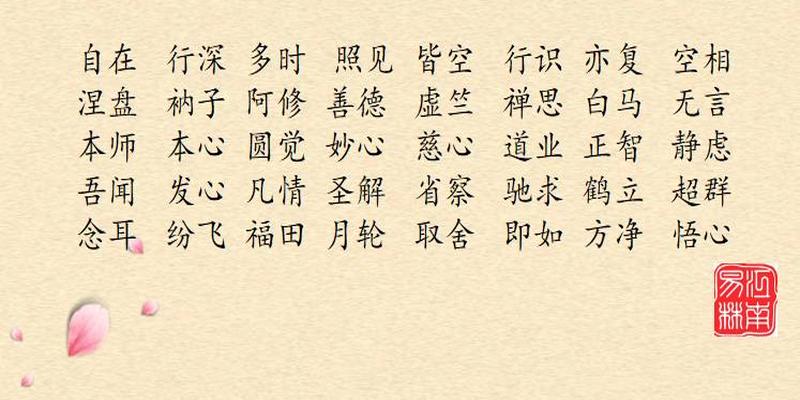 自在 行深 多时 照见 皆空 行识 亦复 空相
涅盘 衲子 阿修 善德 虚竺 禅思 白马 无言
本师 本心 圆觉 妙心 慈心 道业 正智 静虑
吾闻 发心 凡情 圣解 省察 驰求 鹤立 超群
念耳 纷飞 福田 月轮 取舍 即如 方净 悟心
江南易林